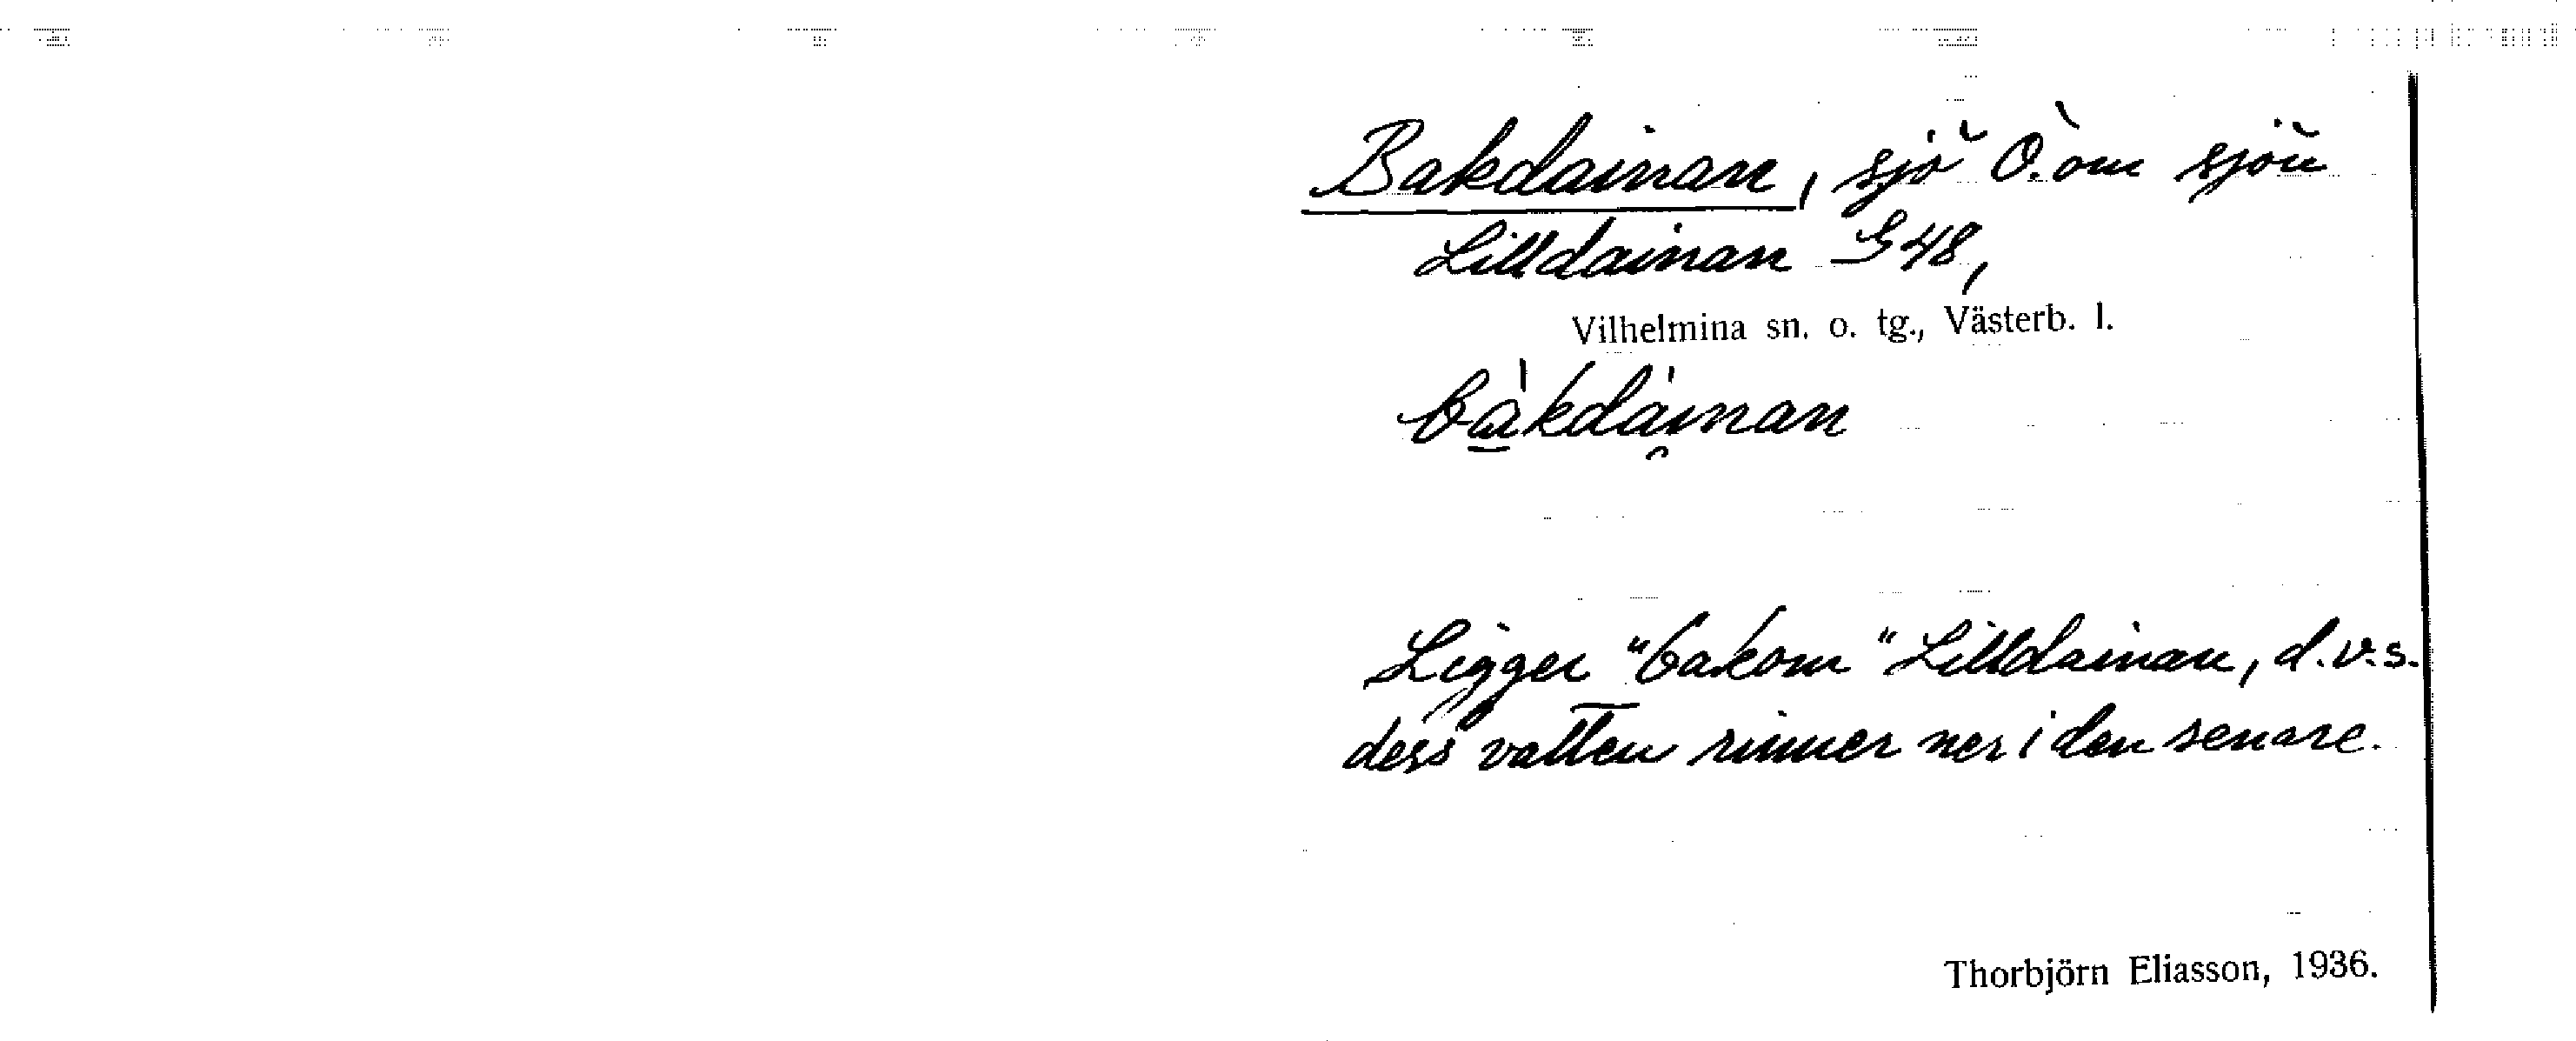 Bakdainan, sjö Ö. om sjön
Lilldainan G48,
Vilhelmina sn. o. tg., Västerb. l.
bàkdàinan
Ligger "bakom" Lilldainan, d.v.s.
dess vatten rinner ner i den senare.
Thorbjörn Eliasson, 1936.